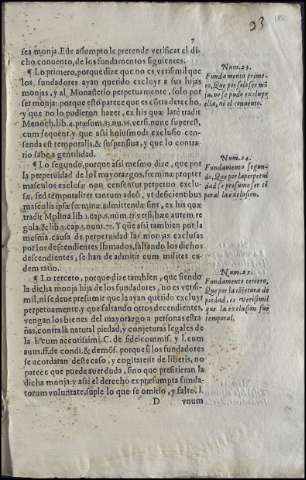 93
7
sea monja. Este assumpto le pretende verificar el di
cho conuento, de los fundamentos siguientes.
¶ Lo primero, porque dize que no es verisimil que
los fundadores ayan querido excluyr a sus hijas
monjas, y al Monasterio perpetuamente, solo por
ser monja: porque esto parece que es cõtra derecho,
y que no lo pudieron hazer, ex his quæ latè tradit
Menoch. lib. 4. præsump.
cum sequent. y que assi huiusmodi exclusio cen-
senda est temporalis, & suspensiua, y que lo contra
rio sabe a gentilidad.
¶ Lo segundo, porque assi mesmo dize, que por
la perpetuidad de los mayorazgos, fœmina propter
masculos exclusa non censentur perpetuo exclu-
sæ, sed temporaliter tantum adeò, vt descendentibus
masculis ipsæ fœminæ admittendæ sint, ex his quæ
tradit Molina lib. 1. cap.
gula & lib. 3. cap. 5. num. Y que assi tambien por la
mesma causa de perpetuidad las monjas exclusas
por los descendientes llamados, faltando los dichos
descendientes, se han de admitir cum militet ea-
dem ratio.
¶ Lo tercero, porque dize tambien, que siendo
la dicha monja hija de los fundadores, no es verisi-
mil, ni se deue presumir que la ayan querido excluyr
perpetuamente, y que faltando otros decendientes
vengan los bienes del mayorazgo a personas estra-
ñas, contra la natural piedad, y conjeturas legales de
la l. cum acutissimi. C. de fideicommis. y l. cum
auus. ff. de condi. & demõs. porque si los fundadores
se acordaran deste caso, y cogitassent de liberis, no
parece que puede auer duda, sino que prefirieran la
dicha monja: y assi el derecho ex præsumpta funda-
torum voluntate, suple lo que se omitio, y falto, l.
D vnum
Num. 23.
Fundamento prime-
ro, Que por solo ser mõ
ja, no la pudo excluyr
ella, ni el conuento.
Num. 24.
Fundamento segun-
do, Que por la perpetui
dad se presume ser tẽ
poral la exclusion.
Num. 25.
Fundamento tercero,
Que por la conjetura de
piedad, es verisimil
que la exclusion fue
temporal.